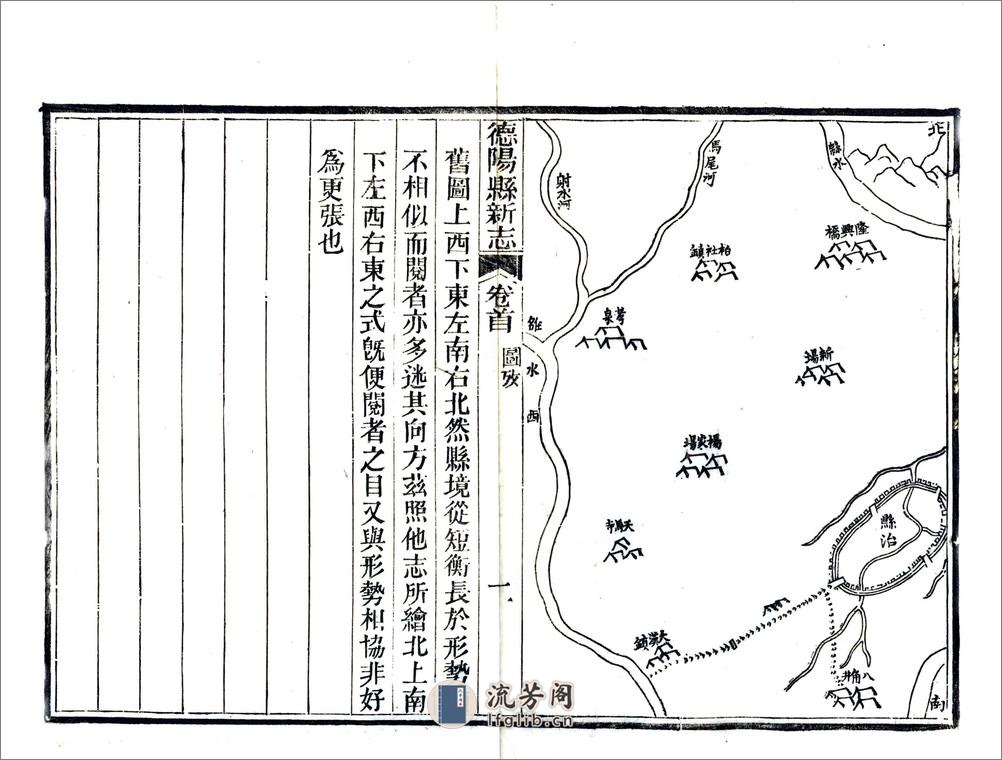 北
緜水
隆興橋
新場
馬尾河
柏社鎮
楊家場
縣治
八角井
南
射水河
孝泉
雒水
西
天寿寺
大漢鎮
德陽縣新志
卷首
圖攷
一
舊圖上西下東左南右北然縣境從短衡長於形勢
不相似而閱者亦多迷其向方茲照他志所繪北上南
下左西右東之式旣便閱者之目又與形勢相協非好
為更張也
流芳阁
lfglib.cn